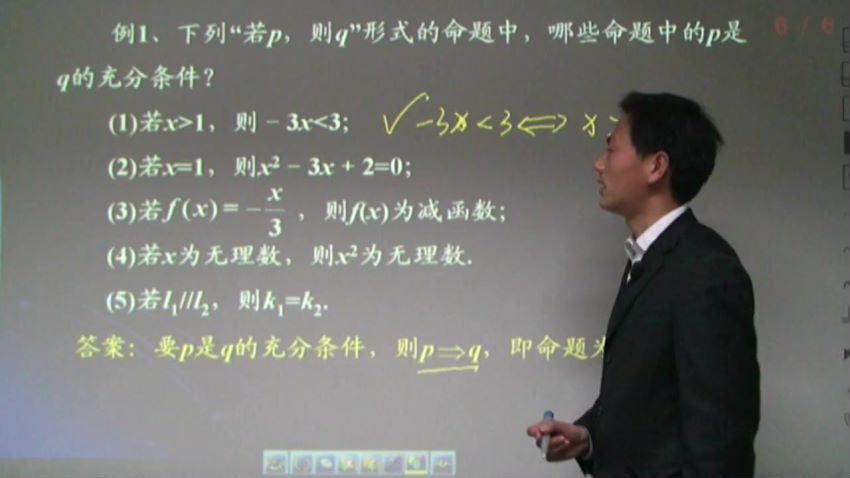 6 / 6
例1、下列“若p，则q”形式的命题中，哪些命题中的p是
q的充分条件？
(1)若x>1，则－3x<3； ✓ -3x<3⇔x>
(2)若x=1，则x²－3x＋2=0；
(3)若f(x)=－x/3，则f(x)为减函数；
(4)若x为无理数，则x²为无理数.
(5)若l₁//l₂，则k₁=k₂.
答案：要p是q的充分条件，则p⇒q，即命题为